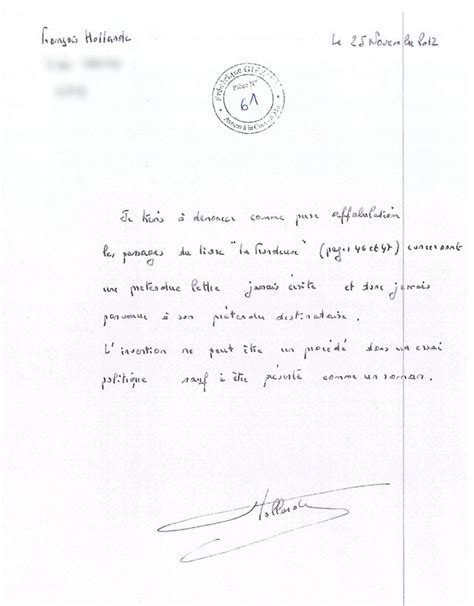 François Hollande
Le 25 Novembre 2012
Frédérique GIFFARD
Pièce N°
61
Avocat à la Cour
Je tiens à dénoncer comme pure affabulation
les passages du livre "la Frondeuse" (pages 46 et 47) concernant
une prétendue lettre jamais écrite et donc jamais
parvenue à son prétendu destinataire.
L'invention ne peut être un procédé dans un essai
politique sauf à être présenté comme un roman.
Hollande